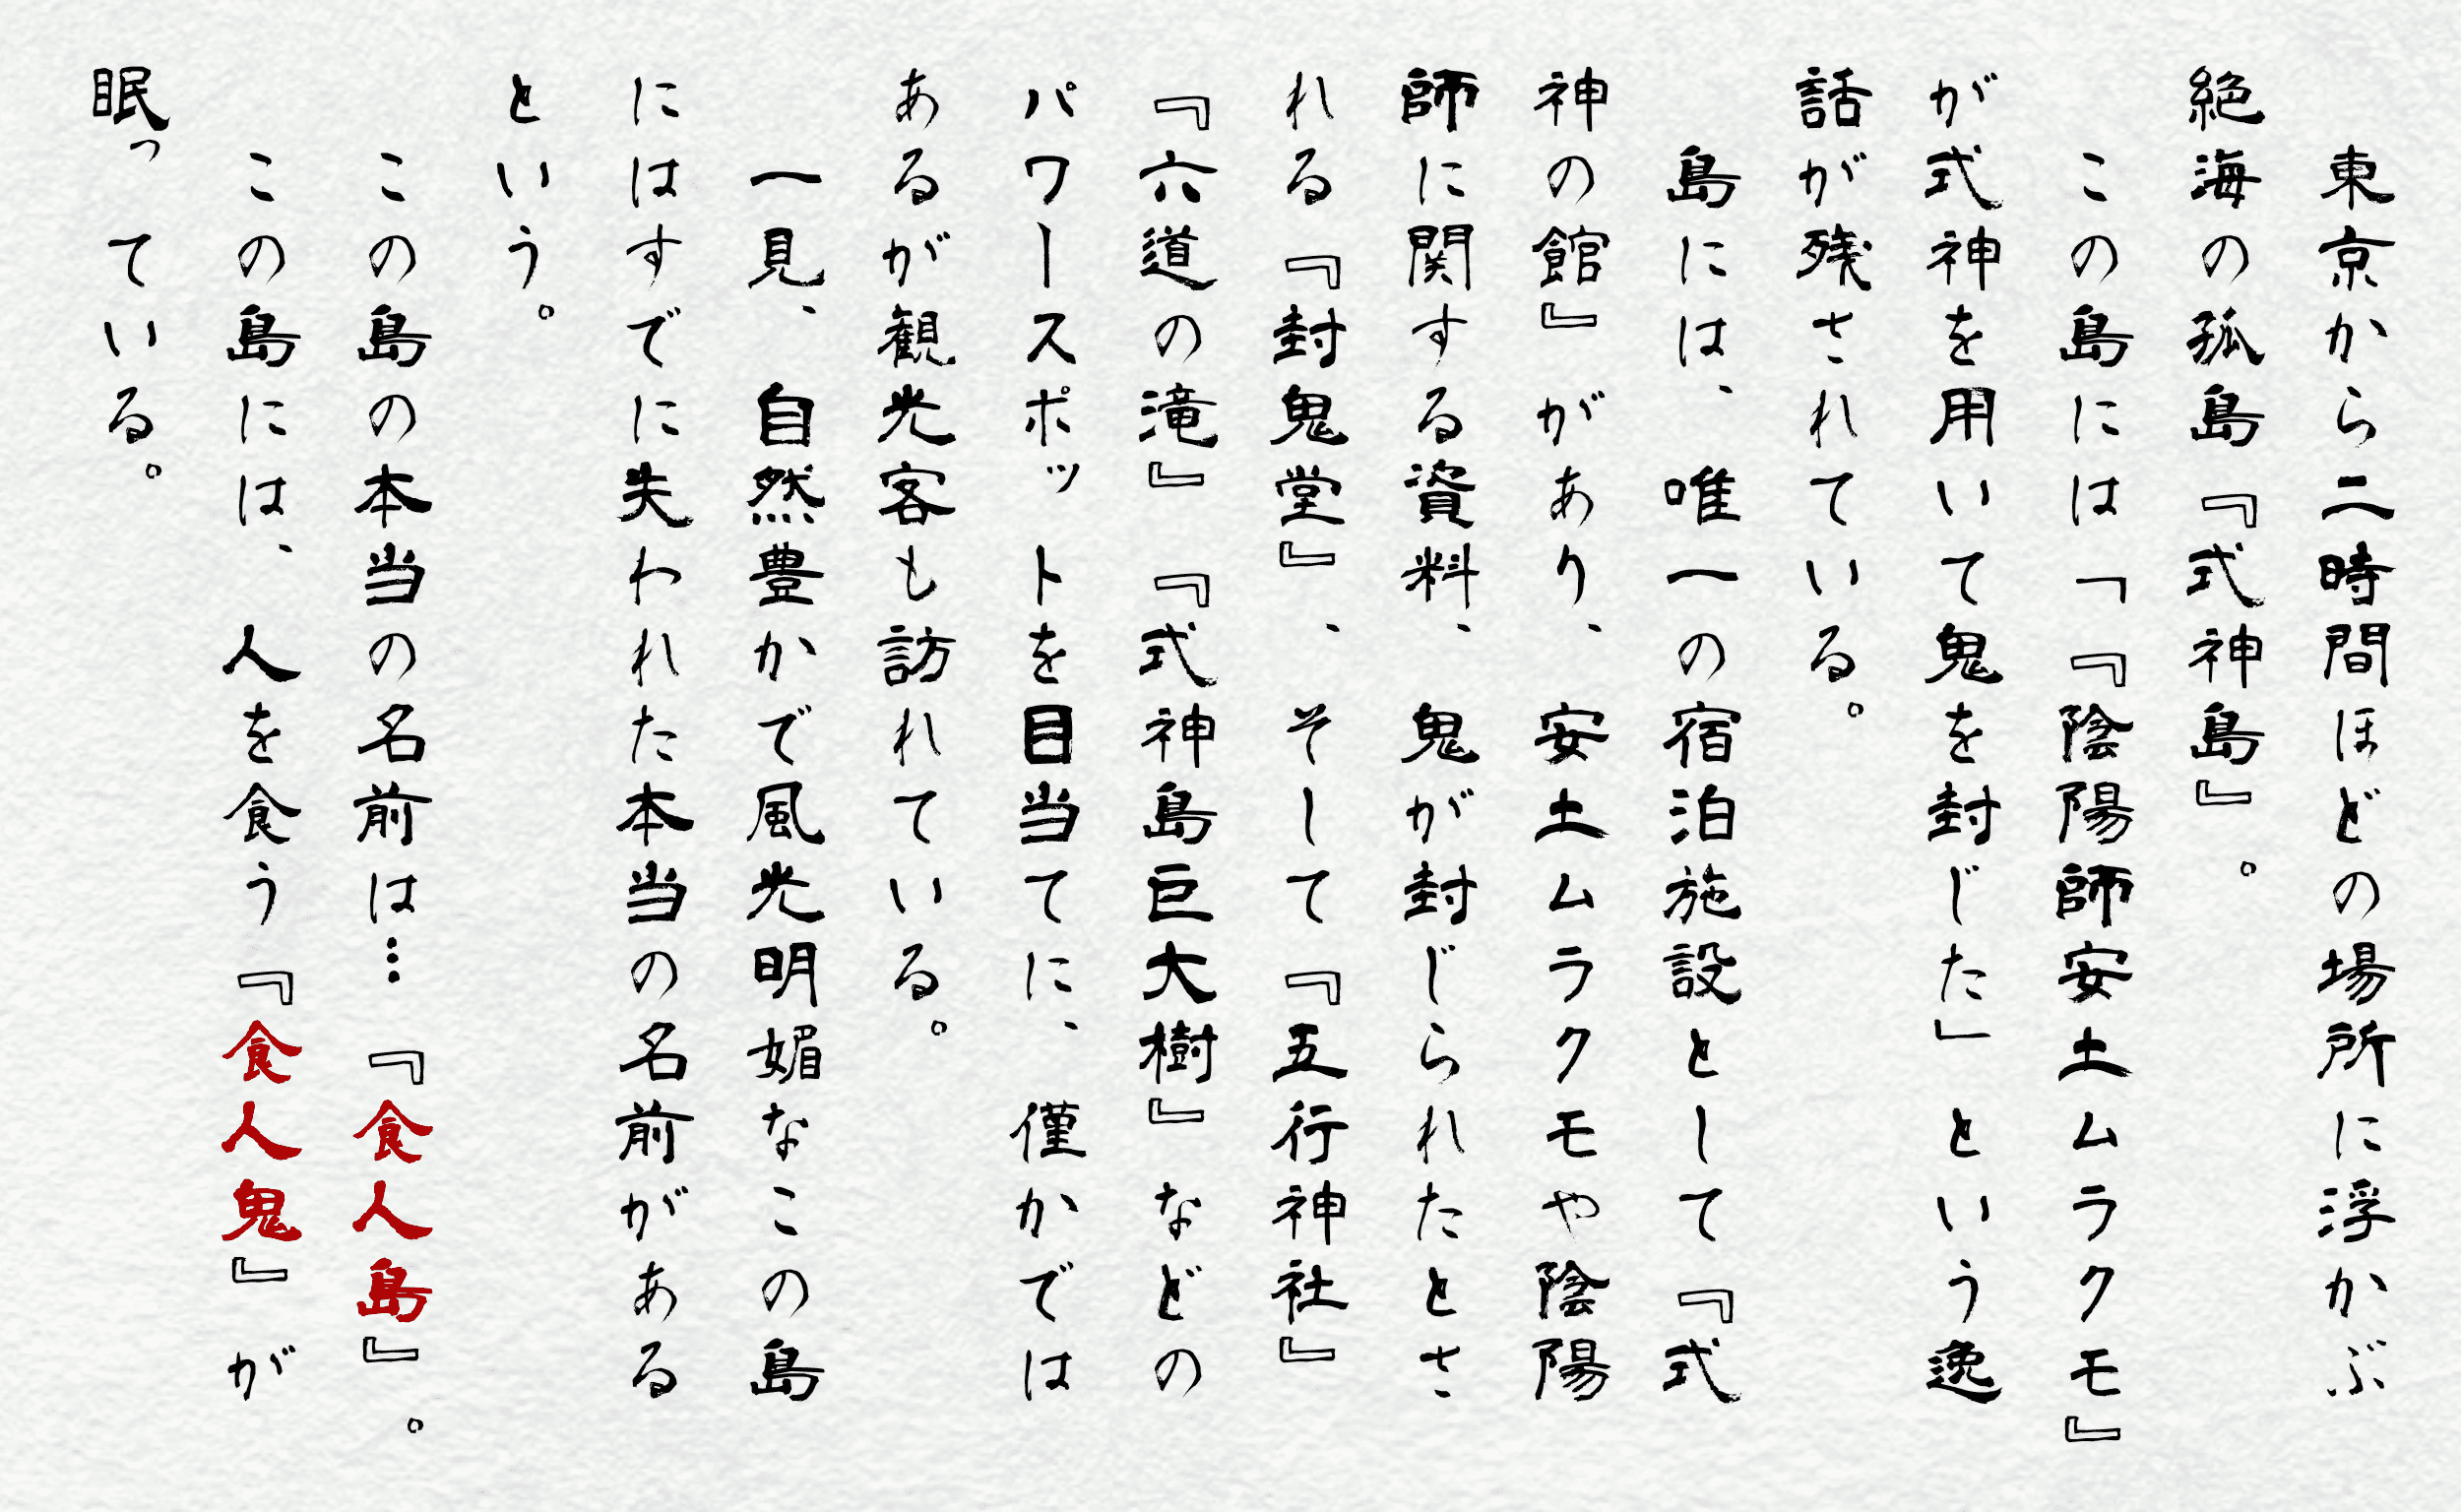 東京から二時間ほどの場所に浮かぶ
絶海の孤島『式神島』。
　この島には「『陰陽師安土ムラクモ』
が式神を用いて鬼を封じた」という逸
話が残されている。
　島には、唯一の宿泊施設として『式
神の館』があり、安土ムラクモや陰陽
師に関する資料、鬼が封じられたとさ
れる『封鬼堂』、そして『五行神社』
『六道の滝』『式神島巨大樹』などの
パワースポットを目当てに、僅かでは
あるが観光客も訪れている。
　一見、自然豊かで風光明媚なこの島
にはすでに失われた本当の名前がある
という。
　この島の本当の名前は…『食人島』。
　この島には、人を食う『食人鬼』が
眠っている。